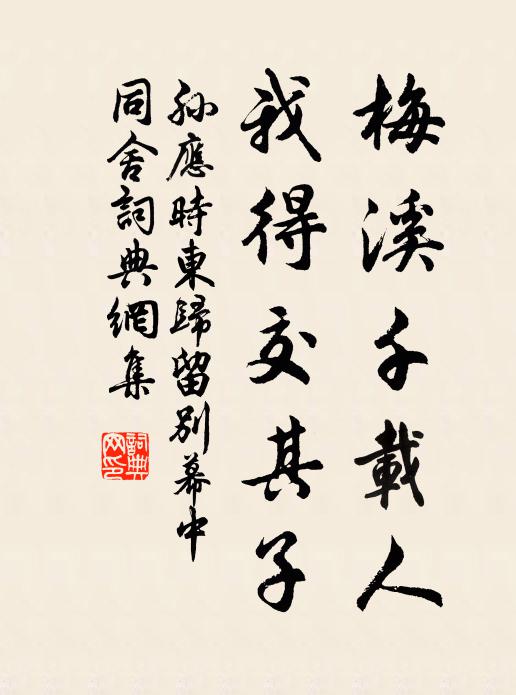 梅溪千載人
我得交其子
孫應時東歸留別幕中
同舍詞典網集
詞典網印